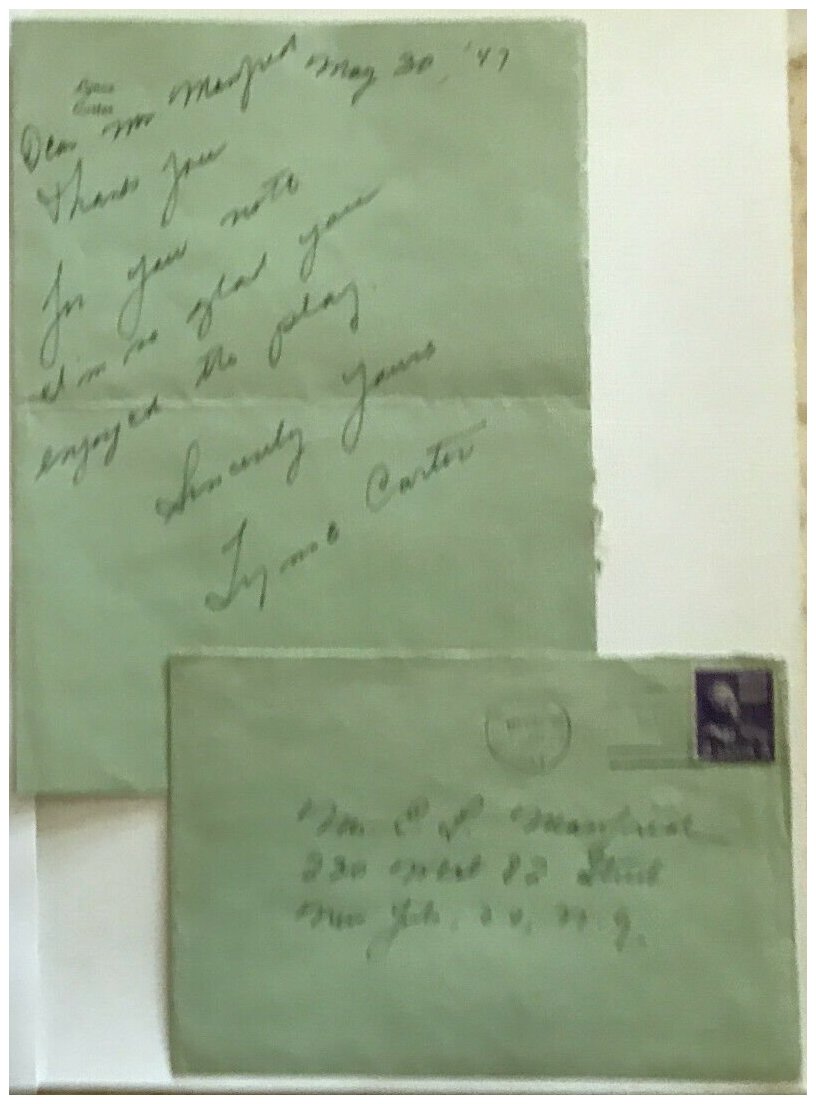 Lynne
Carter
May 20, '47
Dear Mr Manfred
Thank you
for your note
I'm so glad you
enjoyed the play.
Sincerely Yours
Lynne Carter
Mr. C S. Manfred
230 West 82 Street
New York, N.Y.